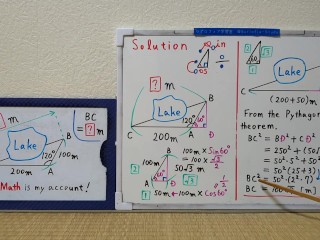 ? m
Lake
B
120°
100m
200m
A
BC
= ? m
Math is my account!
Solution
sin
cos
÷
? m
Lake
B
C
120°
60°
200m
A
D
B
100m × Sin60°
= 100 × √3/2
50√3 m
2
√3
60°
A
D
1
50m ← 100m × Cos60°
1/2
60°
2
√3
1
Lake
C
(200+50) m
From the Pythagor
theorem.
BC² = BD² + CD²
= 250² + (50√
= 50²·5² + 50²
= 50²(25+3)
BC² = 50²·(2²·7)
BC = 100√7 (m)